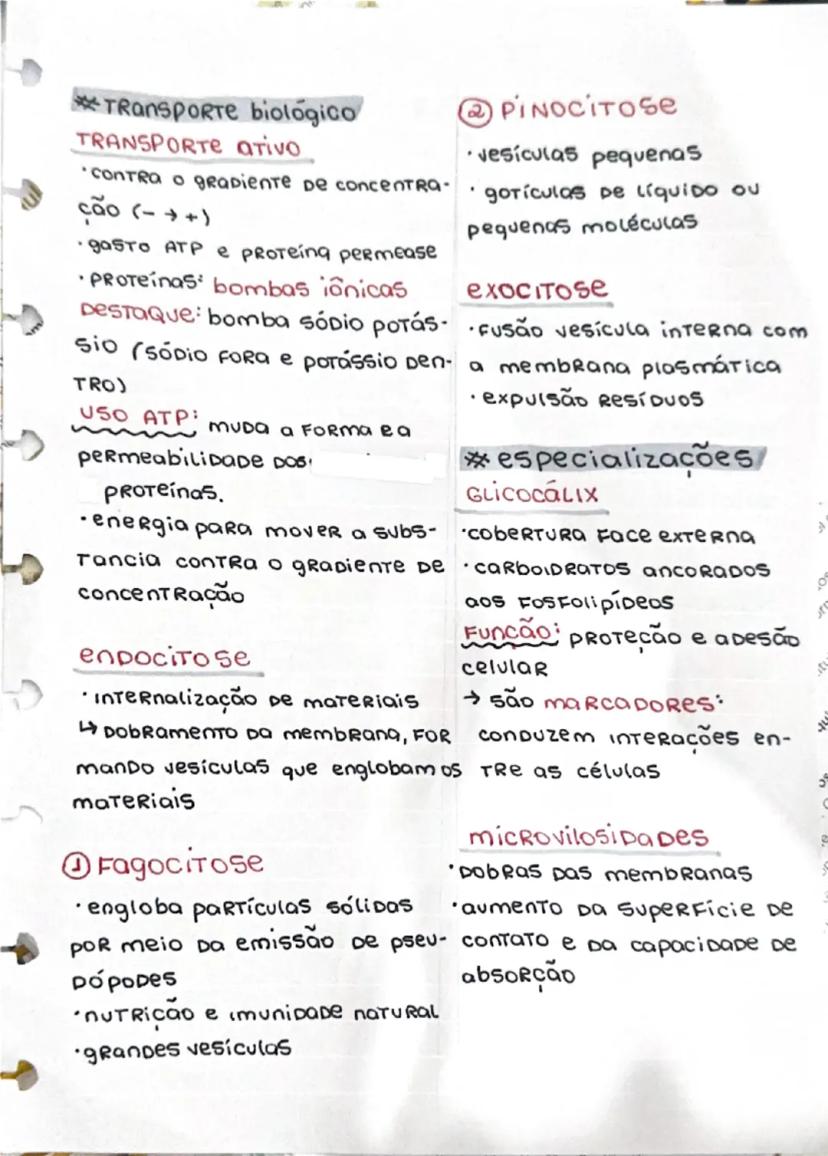 *TRANSPORTE biológico
TRANSPORTE ATIVO
·CONTRA O GRADIENTE DE CONCENTRA-
ção (- → +)
·gasto ATP e PROTEÍNA PERMEASE
·PROTEÍNAS: bombas iônicas
DESTAQUE: bomba SÓDIO POTÁS-
SIO (SÓDIO FORA e POTÁSSIO DEN-
TRO)
USO ATP: MUDA a FORMA e a
PERMEABILIDADE DOS
PROTEÍNAS.
·energia para mover a subs-
Tancia contra o gradiente de
concentração
endocitose
·Internalização de materiais
↳ Dobramento da membrana, for
mando vesículas que englobam os
materiais
① Fagocitose
·engloba partículas sólidas
por meio da emissão de pseu-
dópodes
·nutrição e imunidade natural
·grandes vesículas
② PINOCITOSE
·vesículas pequenas
·gotículas de líquido ou
pequenas moléculas
exocitose
·Fusão vesícula interna com
a membrana plasmática
·expulsão resíduos
*especializações
GLICOCÁLIX
·cobertura face externa
·carboidratos ancorados
aos fosfolipídeos
Função: proteção e adesão
celular
→ são marcadores:
conduzem interações en-
tre as células
microvilosidades
·Dobras das membranas
·aumento da superfície de
contato e da capacidade de
absorção